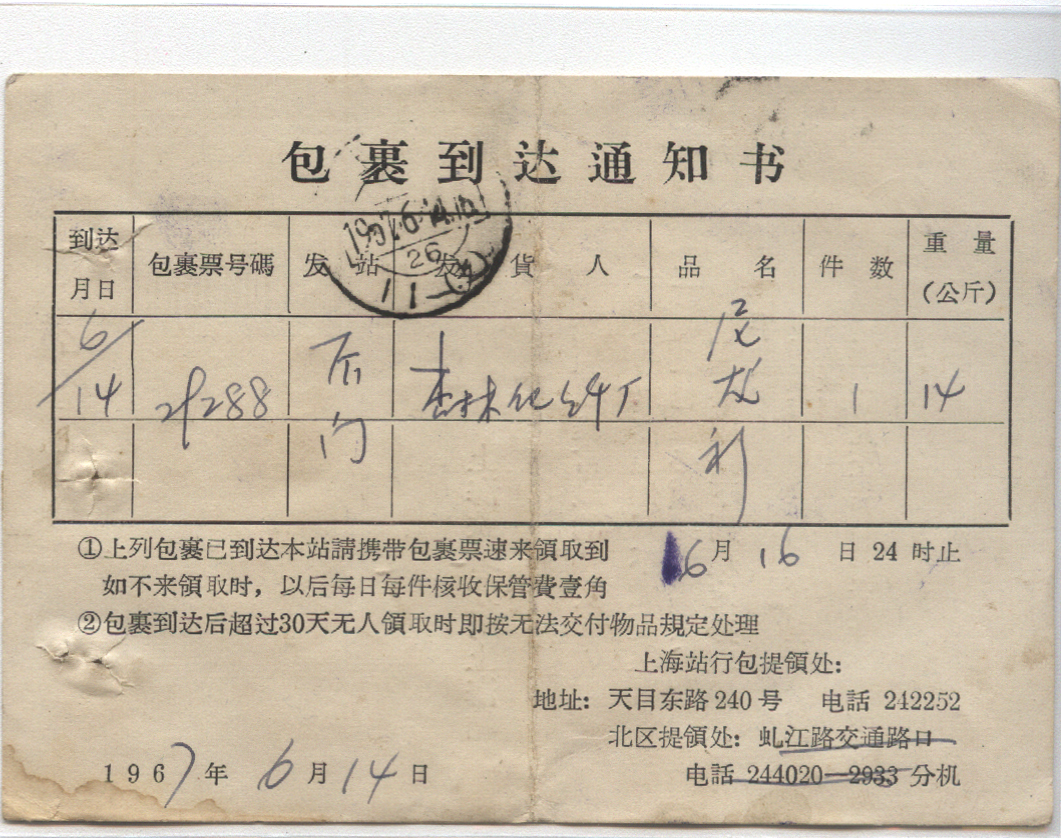 包裹到达通知书
1967.6.14.16
26
到达月日 包裹票号碼 发站 发貨人 品名 件数 重量(公斤)
6/14 288 门 林化纤厂 尼龙 1 14
①上列包裹已到达本站請携带包裹票速来領取到 6月16日24时止
如不来領取时，以后每日每件核收保管費壹角
②包裹到达后超过30天无人領取时即按无法交付物品規定处理
上海站行包提領处：
地址：天目东路240号 电話 242252
北区提領处：虬江路交通路口
电話 244020—2933 分机
1967年6月14日